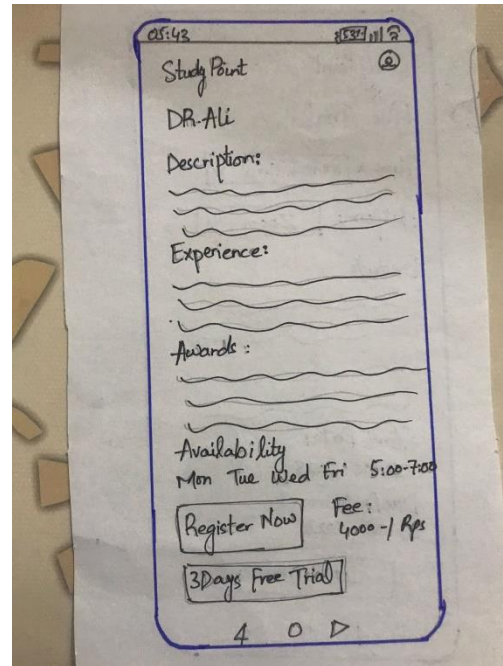 05:43 53%
Study Point
DR-Ali
Description:
Experience:
Awards :
Availability
Mon Tue Wed Fri 5:00-7:00
Register Now
Fee:
4000-/ Rps
3Days Free Trial